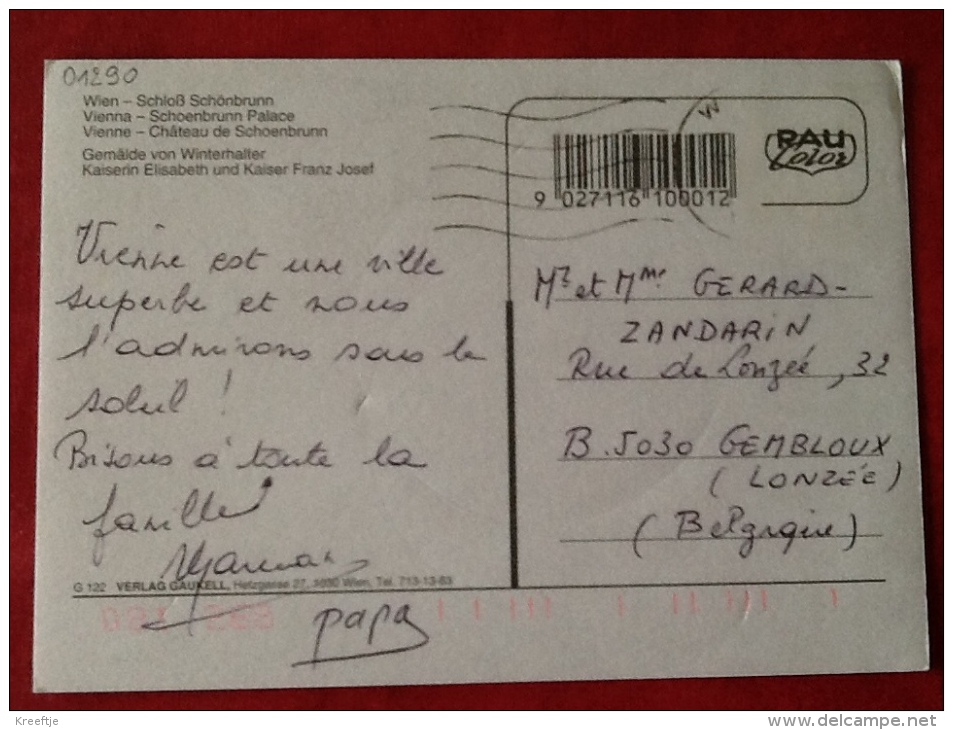 01290
Wien – Schloß Schönbrunn
Vienna – Schoenbrunn Palace
Vienne – Château de Schoenbrunn
Gemälde von Winterhalter
Kaiserin Elisabeth und Kaiser Franz Josef
Vienne est une ville
superbe et nous
l'admirons sous le
soleil !
Bisous à toute la
famille
Maman
papa
G 122 VERLAG GAUKELL, Hetzgasse 27, 1030 Wien, Tel. 713-13-83
W
RAU
Color
9 027116 100012
Mr et Mme GERARD-
ZANDARIN
Rue de Lonzée, 32
B. 5030 GEMBLOUX
(LONZÉE)
(Belgique)
Kreeftje
delcampe.net